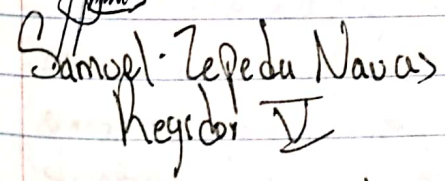 Samuel. Zepeda Navas
Regidor V